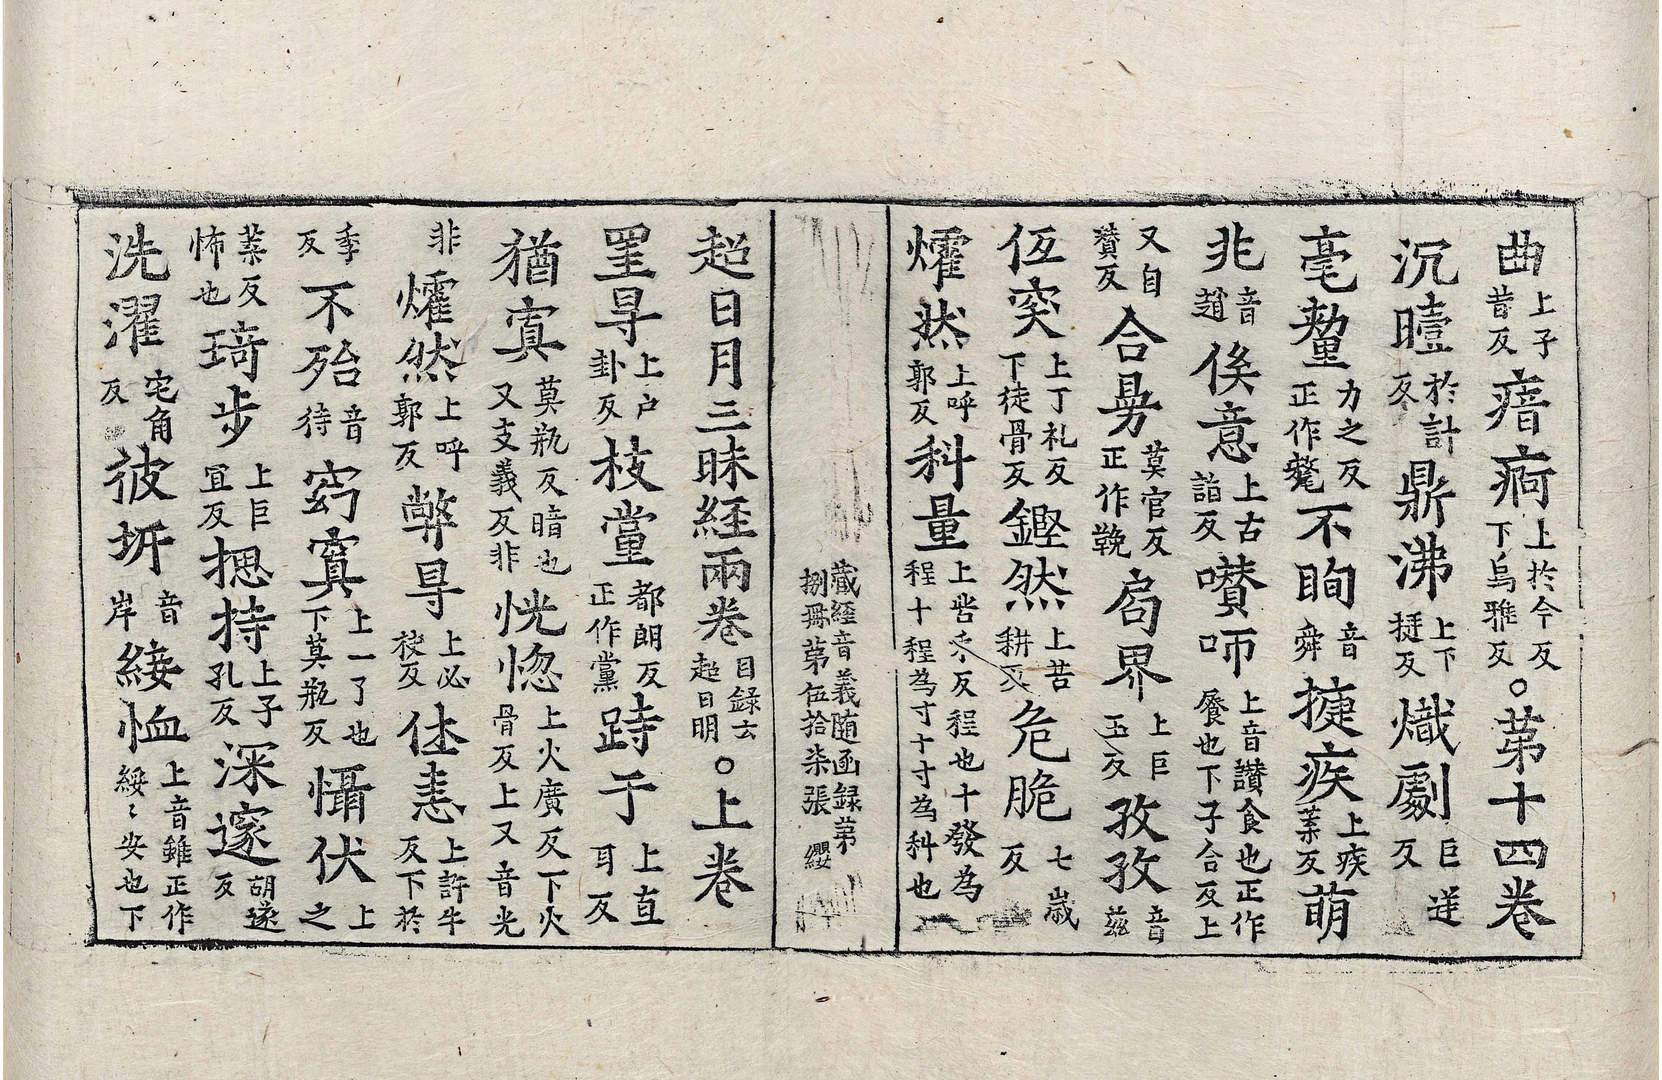 曲上子昔反瘖瘂上於今反下烏雅反。苐十四卷
沉曀於計反鼎沸上下挺反熾劇巨逆反
毫𣯛力之反正作氂不眴音舜揵疾上疾葉反萌
兆音趙俟意上古詣反囋㖠上音讃食也正作饡也下子合反上
又自賛反合㬅莫官反正作鞔㕯界上巨玉反孜孜音玆
仾突上丁礼反下徒骨反鏗然上苦耕反危脆七歳反
㸌然上呼郭反科量上苦禾反程也十發為程十程為寸十寸為科也
藏經音義随函録苐捌冊苐伍拾柒張 纓
超日月三昧経兩卷目録云超日明。上卷
罣㝵上户卦反枝黨都朗反正作黨跱于上直耳反
猶㝠莫瓶反暗也又支義反非恍惚上火廣反下火骨反上又音光
非㸌然上呼郭反弊㝵上必袂反㑅恚上許牛反下於
季反不殆音待窈㝠上一了也下莫瓶反懾伏上之
葉反怖也琦步上巨冝反揔持上子孔反深邃胡遂反
洗濯宅角反彼㘹音岸綏恤上音雖正作綏綏〻安也下